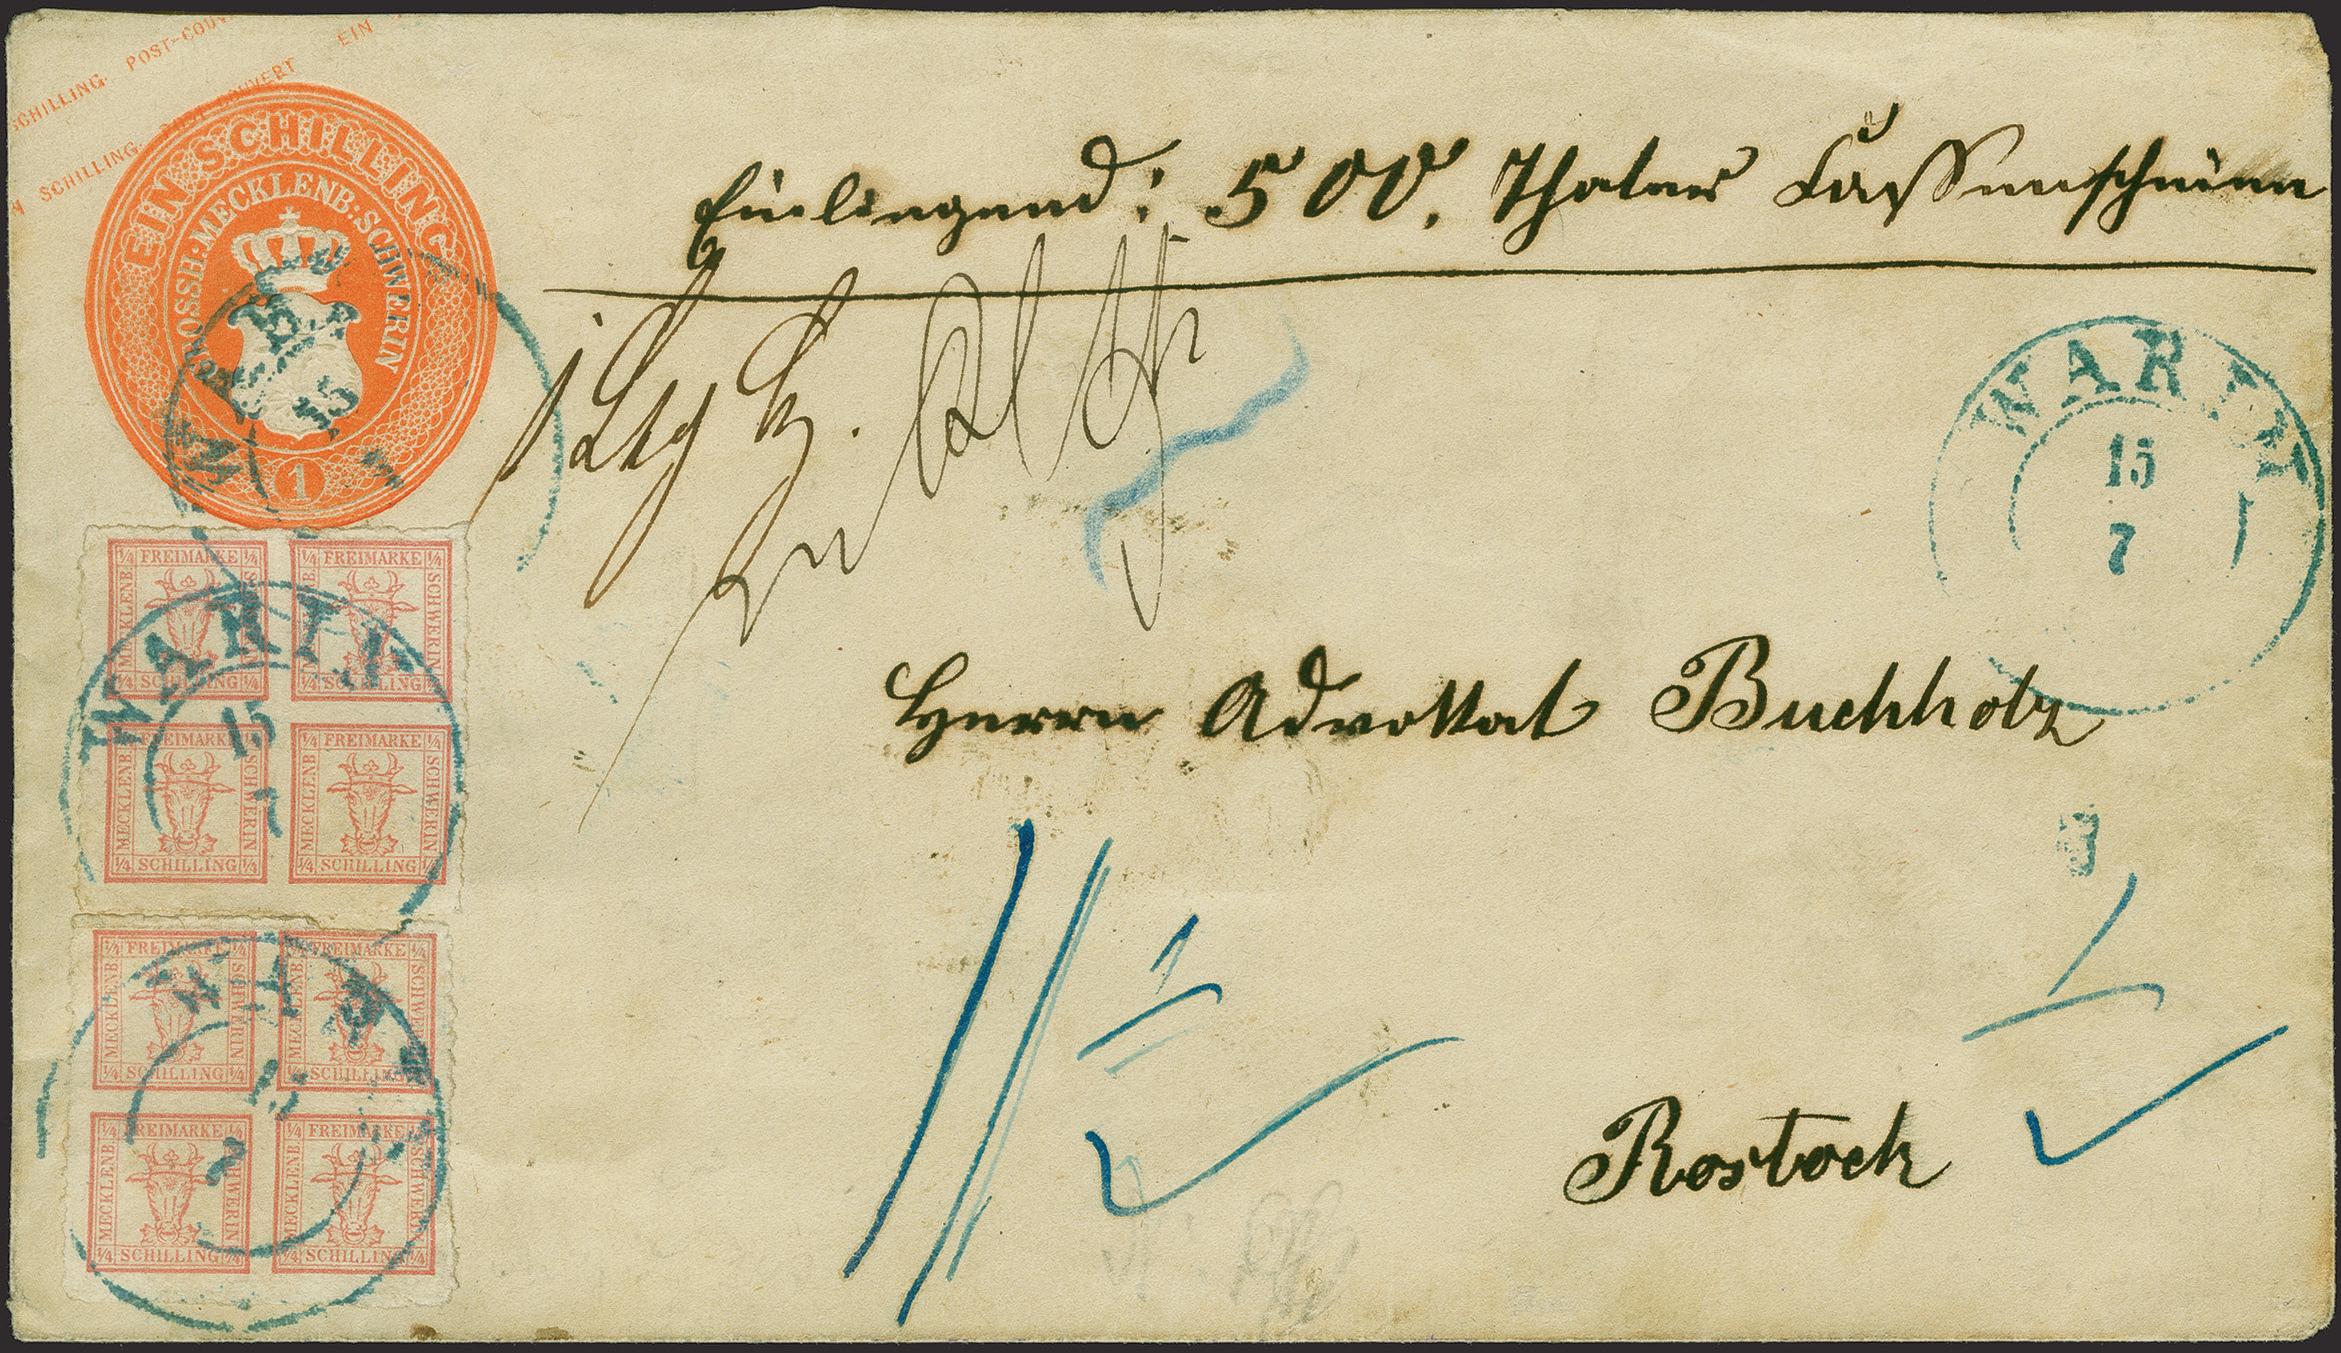 SCHILLING. POST-COUV
EIN
N SCHILLING. POST-COUVERT
EIN SCHILLING
GROSSH: MECKLENB: SCHWERIN
1
Einliegend: 500. Thaler Cassenscheine
WARIN
15
7
WARIN
15
7
Herrn Advokat Buchholz
Rostock
1/4 FREIMARKE 1/4
MECKLENB.
SCHWERIN
1/4 SCHILLING 1/4
1/4 FREIMARKE 1/4
MECKLENB.
SCHWERIN
1/4 SCHILLING 1/4
1/4 FREIMARKE 1/4
MECKLENB.
SCHWERIN
1/4 SCHILLING 1/4
1/4 FREIMARKE 1/4
MECKLENB.
SCHWERIN
1/4 SCHILLING 1/4
WARIN
15
7
1/4 FREIMARKE 1/4
MECKLENB.
SCHWERIN
1/4 SCHILLING 1/4
1/4 FREIMARKE 1/4
MECKLENB.
SCHWERIN
1/4 SCHILLING 1/4
1/4 FREIMARKE 1/4
MECKLENB.
SCHWERIN
1/4 SCHILLING 1/4
1/4 FREIMARKE 1/4
MECKLENB.
SCHWERIN
1/4 SCHILLING 1/4
WARIN
15
7